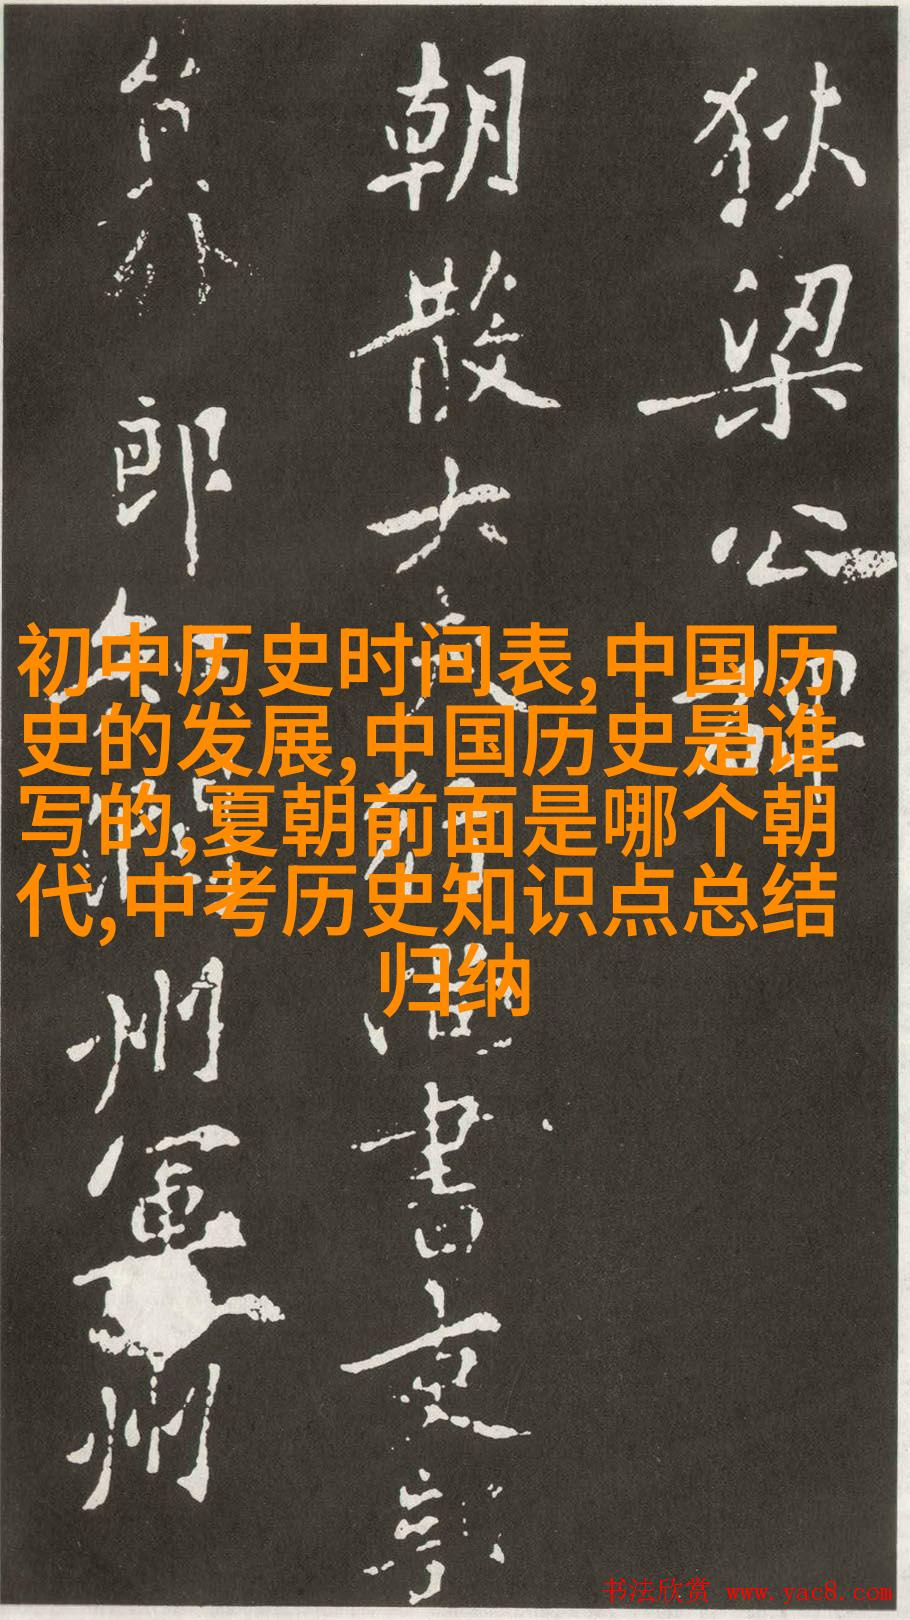 狄梁公
朝散大夫行尚書吏部
員外郎
州軍州
初中历史时间表,中国历
史的发展,中国历史是谁
写的,夏朝前面是哪个朝
代,中考历史知识点总结
归纳
书法欣赏 www.yac8.com